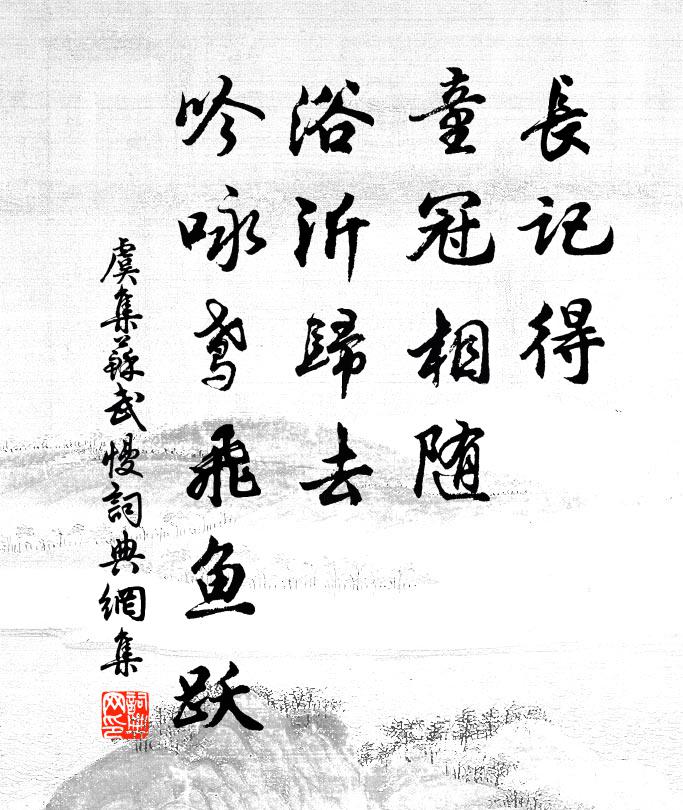 長記得
童冠相随
浴沂歸去
吟咏鸢飛鱼跃
虞集蘇武慢詞典網集
詞典网印